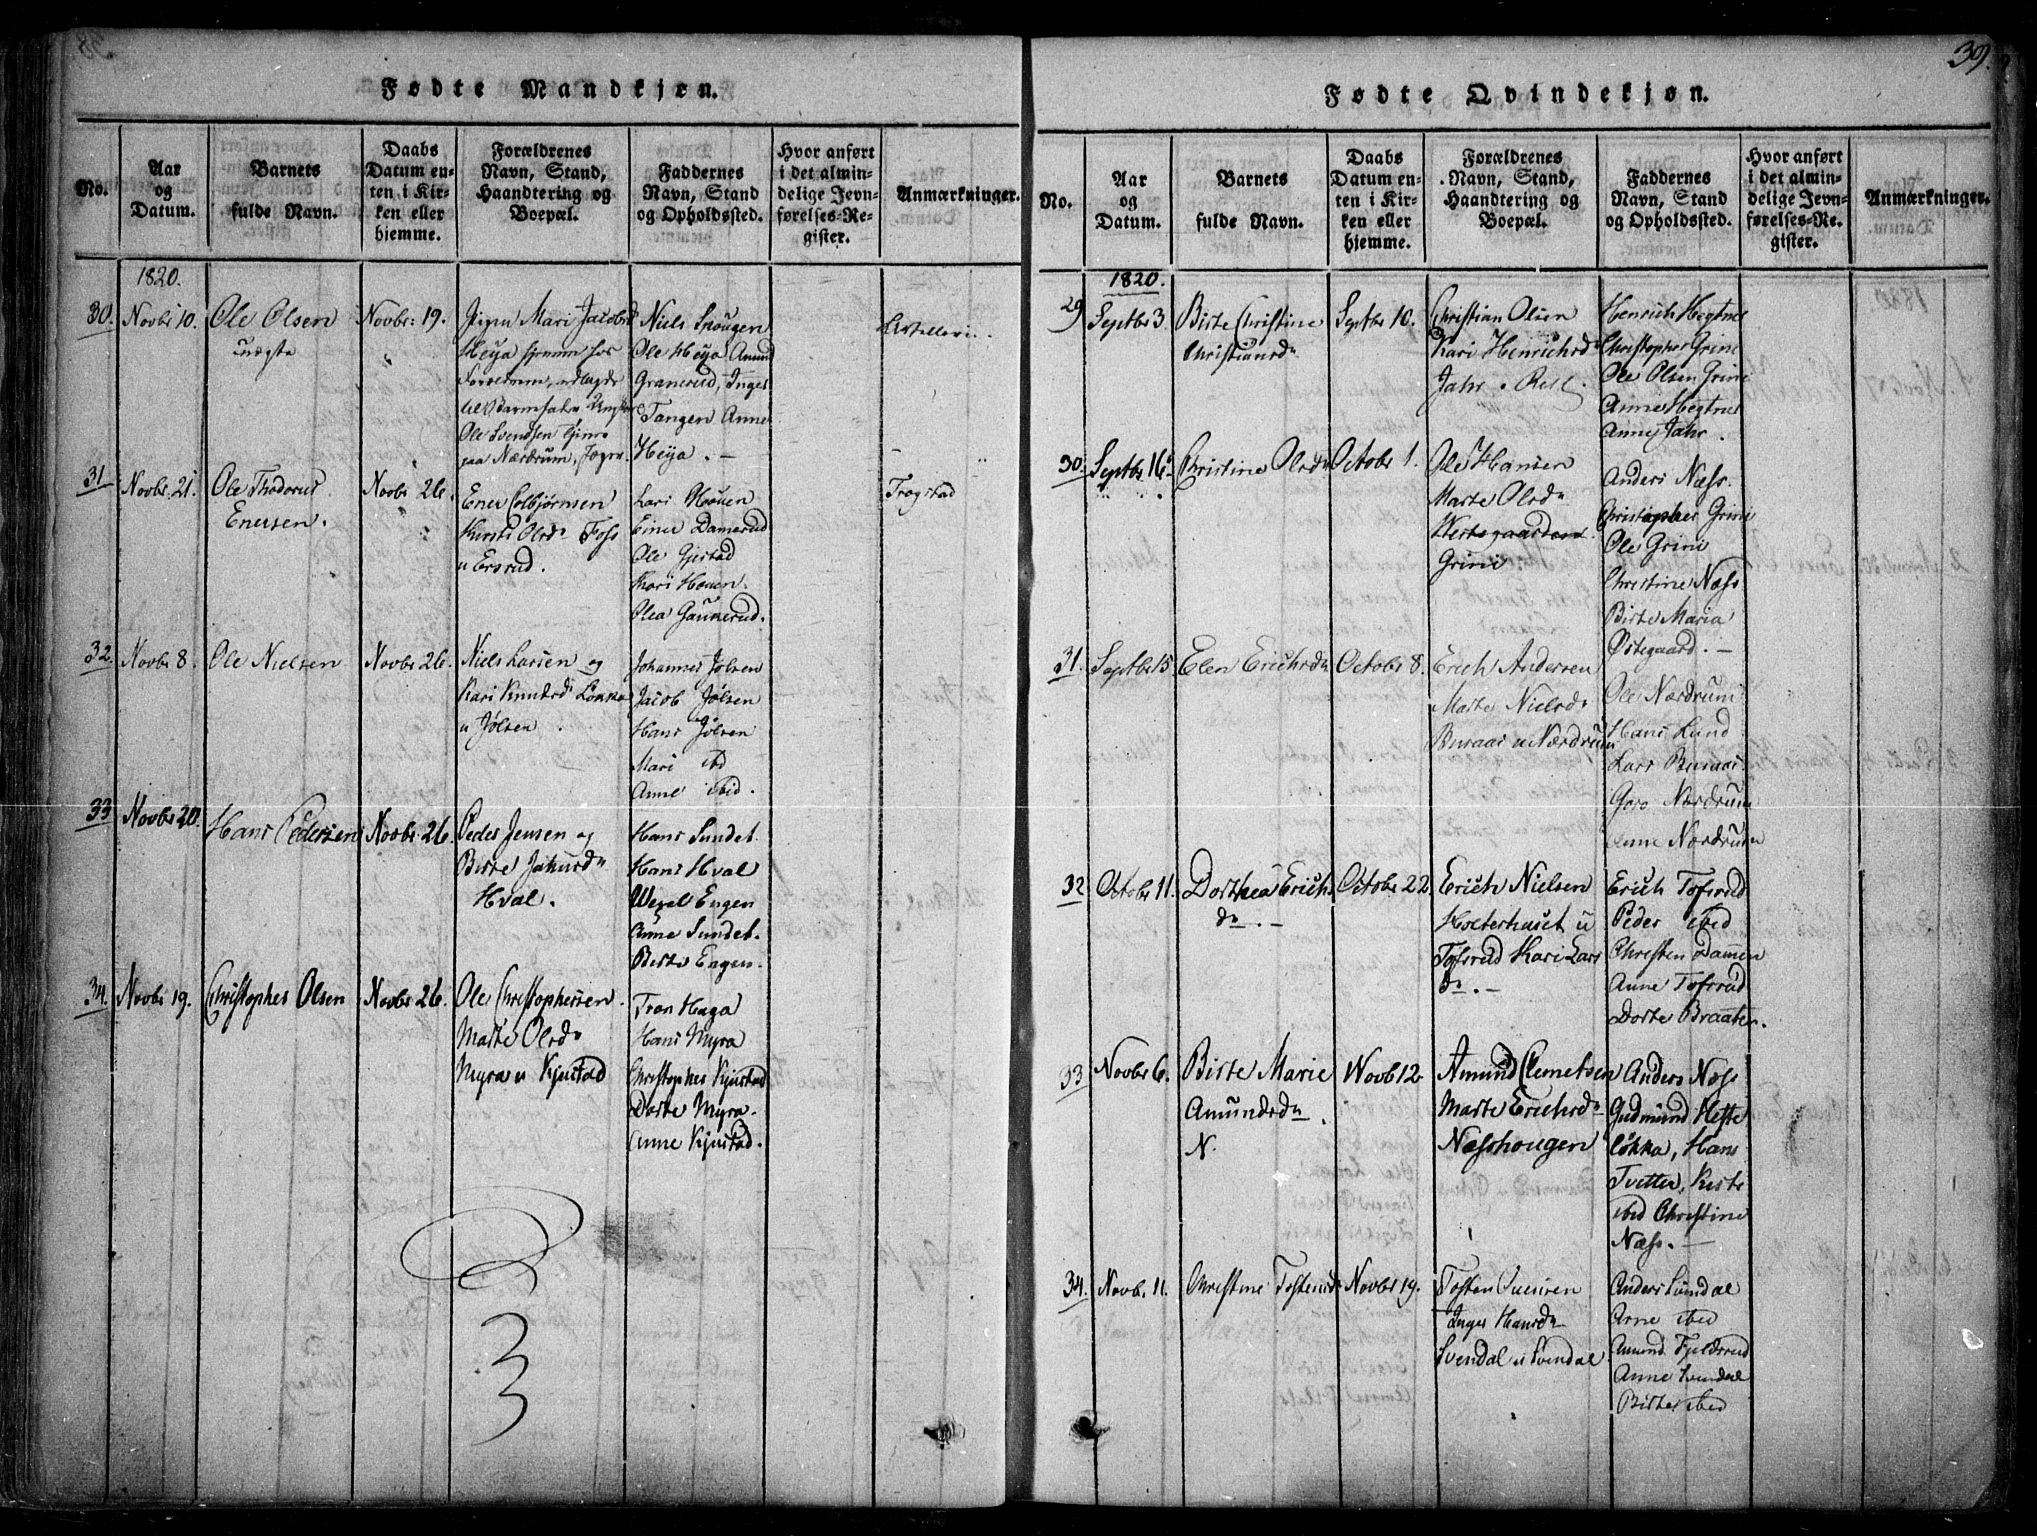 39.
Fødte Mandkjøn.
No.
Aar
og
Datum.
Barnets
fulde Navn.
Daabs
Datum en-
ten i Kir-
ken eller
hjemme.
Forældrenes
Navn, Stand,
Haandtering og
Boepæl.
Faddernes
Navn, Stand
og Opholdssted.
Hvor anført
i det almin-
delige Jevn-
førelses-Re-
gister.
Anmærkninger.
1820.
30.
Novbr 10.
Ole Olsen
uægte
Novbr: 19.
Pigen Mari Jacobsd
Heya hjemme hos
til Barnefader
Ole Svendsen
paa Nærdrum,
Niels
Ole Heya Amund
Granerud, Inger
Tangen Anne
Heya. —
31
Novbr. 21.
Ole Thodorus
Enersen.
Novbr 26.
Ener Colbjørnsen
Kirsti Olsdr Foss
u Ersrud.
Lars Houen
Einer Damerud
Ole Gjestad
Kari Houen.
Olea Gaunerud.
Trøgstad
32.
Novbr 8.
Ole Nielsen
Novbr 26.
Niels Larsen og
Kari Knudsdr Løkka
u Jølsen.
Johannes Jølsen
Jacob Jølsen
Hans Jølsen
Mari ibd
Anne ibid.
33
Novbr 20.
Hans Pedersen
Novbr. 26.
Peder Jensen og
Birte
Hval.
Hans Sundet.
Hans Hval
Wexel Engen
Anne Sundet.
Birte Engen.
34.
Novbr 19.
Christopher Olsen
Novbr 26.
Ole Christophersen.
Marte Olsdr
Myra u Kjustad
Tron Haga
Hans Myra
Christopher Kjustad
Dorte Myra.
Anne Kjustad.
Fødte Qvindekjøn.
No.
Aar
og
Datum.
Barnets
fulde Navn.
Daabs
Datum en-
ten i Kir-
ken eller
hjemme.
Forældrenes
Navn, Stand,
Haandtering og
Boepæl.
Faddernes
Navn, Stand
og Opholdssted.
Hvor anført
i det almin-
delige Jevn-
førelses-Re-
gister.
Anmærkninger.
1820.
29
Septbr 3.
Birte Christine
Christiansdr
Septbr 10.
Christian Olsen
Kari Henrichsdr
Jahr
Henrich Hegtnes
Christopher Grine
Ole Olsen Grine
Anne Hegtnes
Anne Jahr.
30.
Septbr 16.
Christine Olsdr
Octobr 1.
Ole Hansen
Marte Olsdr
Westegaarden
Grini
Anders Næss.
Christopher Grini
Ole Grini
Christine Næss
Birte Maria
Østegaard. —
31.
Septbr 15
Elen Erichsdr
Octobr 8.
Erich Andersen
Marte Nielsdr
Buraas u Nærdrum
Ole Nærdrum
Hans Lund
Lars Buraas
Goro Nærdrum
Anne Nærdrum
32
Octobr 11.
Dorthea Erichs
dr. —
Octobr 22.
Erich Nielsen
Holterhuset u
Tofsrud Kari Lars
dr. —
Erich Tofsrud
Peder ibid
Christen Damen
Anne Tofsrud
Dorte Braaten.
33
Novbr 6.
Birte Marie
Amundsdr
N.
Novb 12.
Amund Clemetsen
Marte Erichsdr
Næsshougen
Anders Næss
Gudmund Hesteløkka, Hans
Tvetter, Kirsti
ibid Christine
Næss. —
34.
Novb. 11.
Christine Tostensdr
Novbr 19.
Tosten
Inger Hansdr
Svendal u Svendal
Anders Svendal
Arne ibid
Amund Fjeldsrud
Anne Svendal
Birte ibid